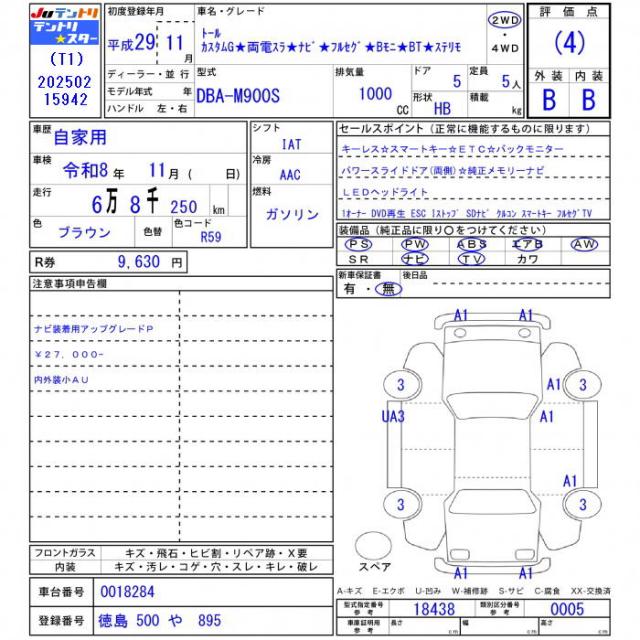 JUテントリ
テントリ
★スター
(T1)
202502
15942
初度登録年月
平成29 11月
ディーラー・並 行
モデル年式 年
ハンドル 左・右
車名・グレード
トール
カスタムG★両電スラ★ナビ★フルセグ★Bモニ★BT★ステリモ
2WD
・
4WD
評 価 点
(4)
外 装 内 装
B B
型式
DBA-M900S
排気量
1000
CC
ドア 5
定員 5人
形状 HB
積載 kg
車歴
自家用
シフト
IAT
車検
令和8年 11月( 日)
冷房
AAC
走行
6万 8千 250 km
燃料
ガソリン
色
ブラウン
色替
色コード
R59
セールスポイント(正常に機能するものに限ります)
キーレス☆スマートキー☆ETC☆バックモニター
パワースライドドア(両側)☆純正メモリーナビ
LEDヘッドライト
1オーナー DVD再生 ESC Iストップ SDナビ クルコン スマートキー フルセグTV
装備品(純正品に限り〇をつけてください)
PS PW ABS エアB AW
SR ナビ TV カワ
R券 9,630 円
新車保証書
有・無
後日品
注意事項申告欄
ナビ装着用アップグレードP
￥27,000-
内外装小AU
A1 A1
3 A1 3
UA3 A1
A1
3 3
A1 A1
スペア
フロントガラス キズ・飛石・ヒビ割・リペア跡・X要
内装 キズ・汚レ・コゲ・穴・スレ・キレ・破レ
A-キズ E-エクボ U-凹み W-補修跡 S-サビ C-腐食 XX-交換済
車台番号 0018284
登録番号 徳島 500 や 895
型式指定番号
参 考
18438
類別区分番号
参 考
0005
車庫証明用
参 考
長さ cm
幅 cm
高さ cm